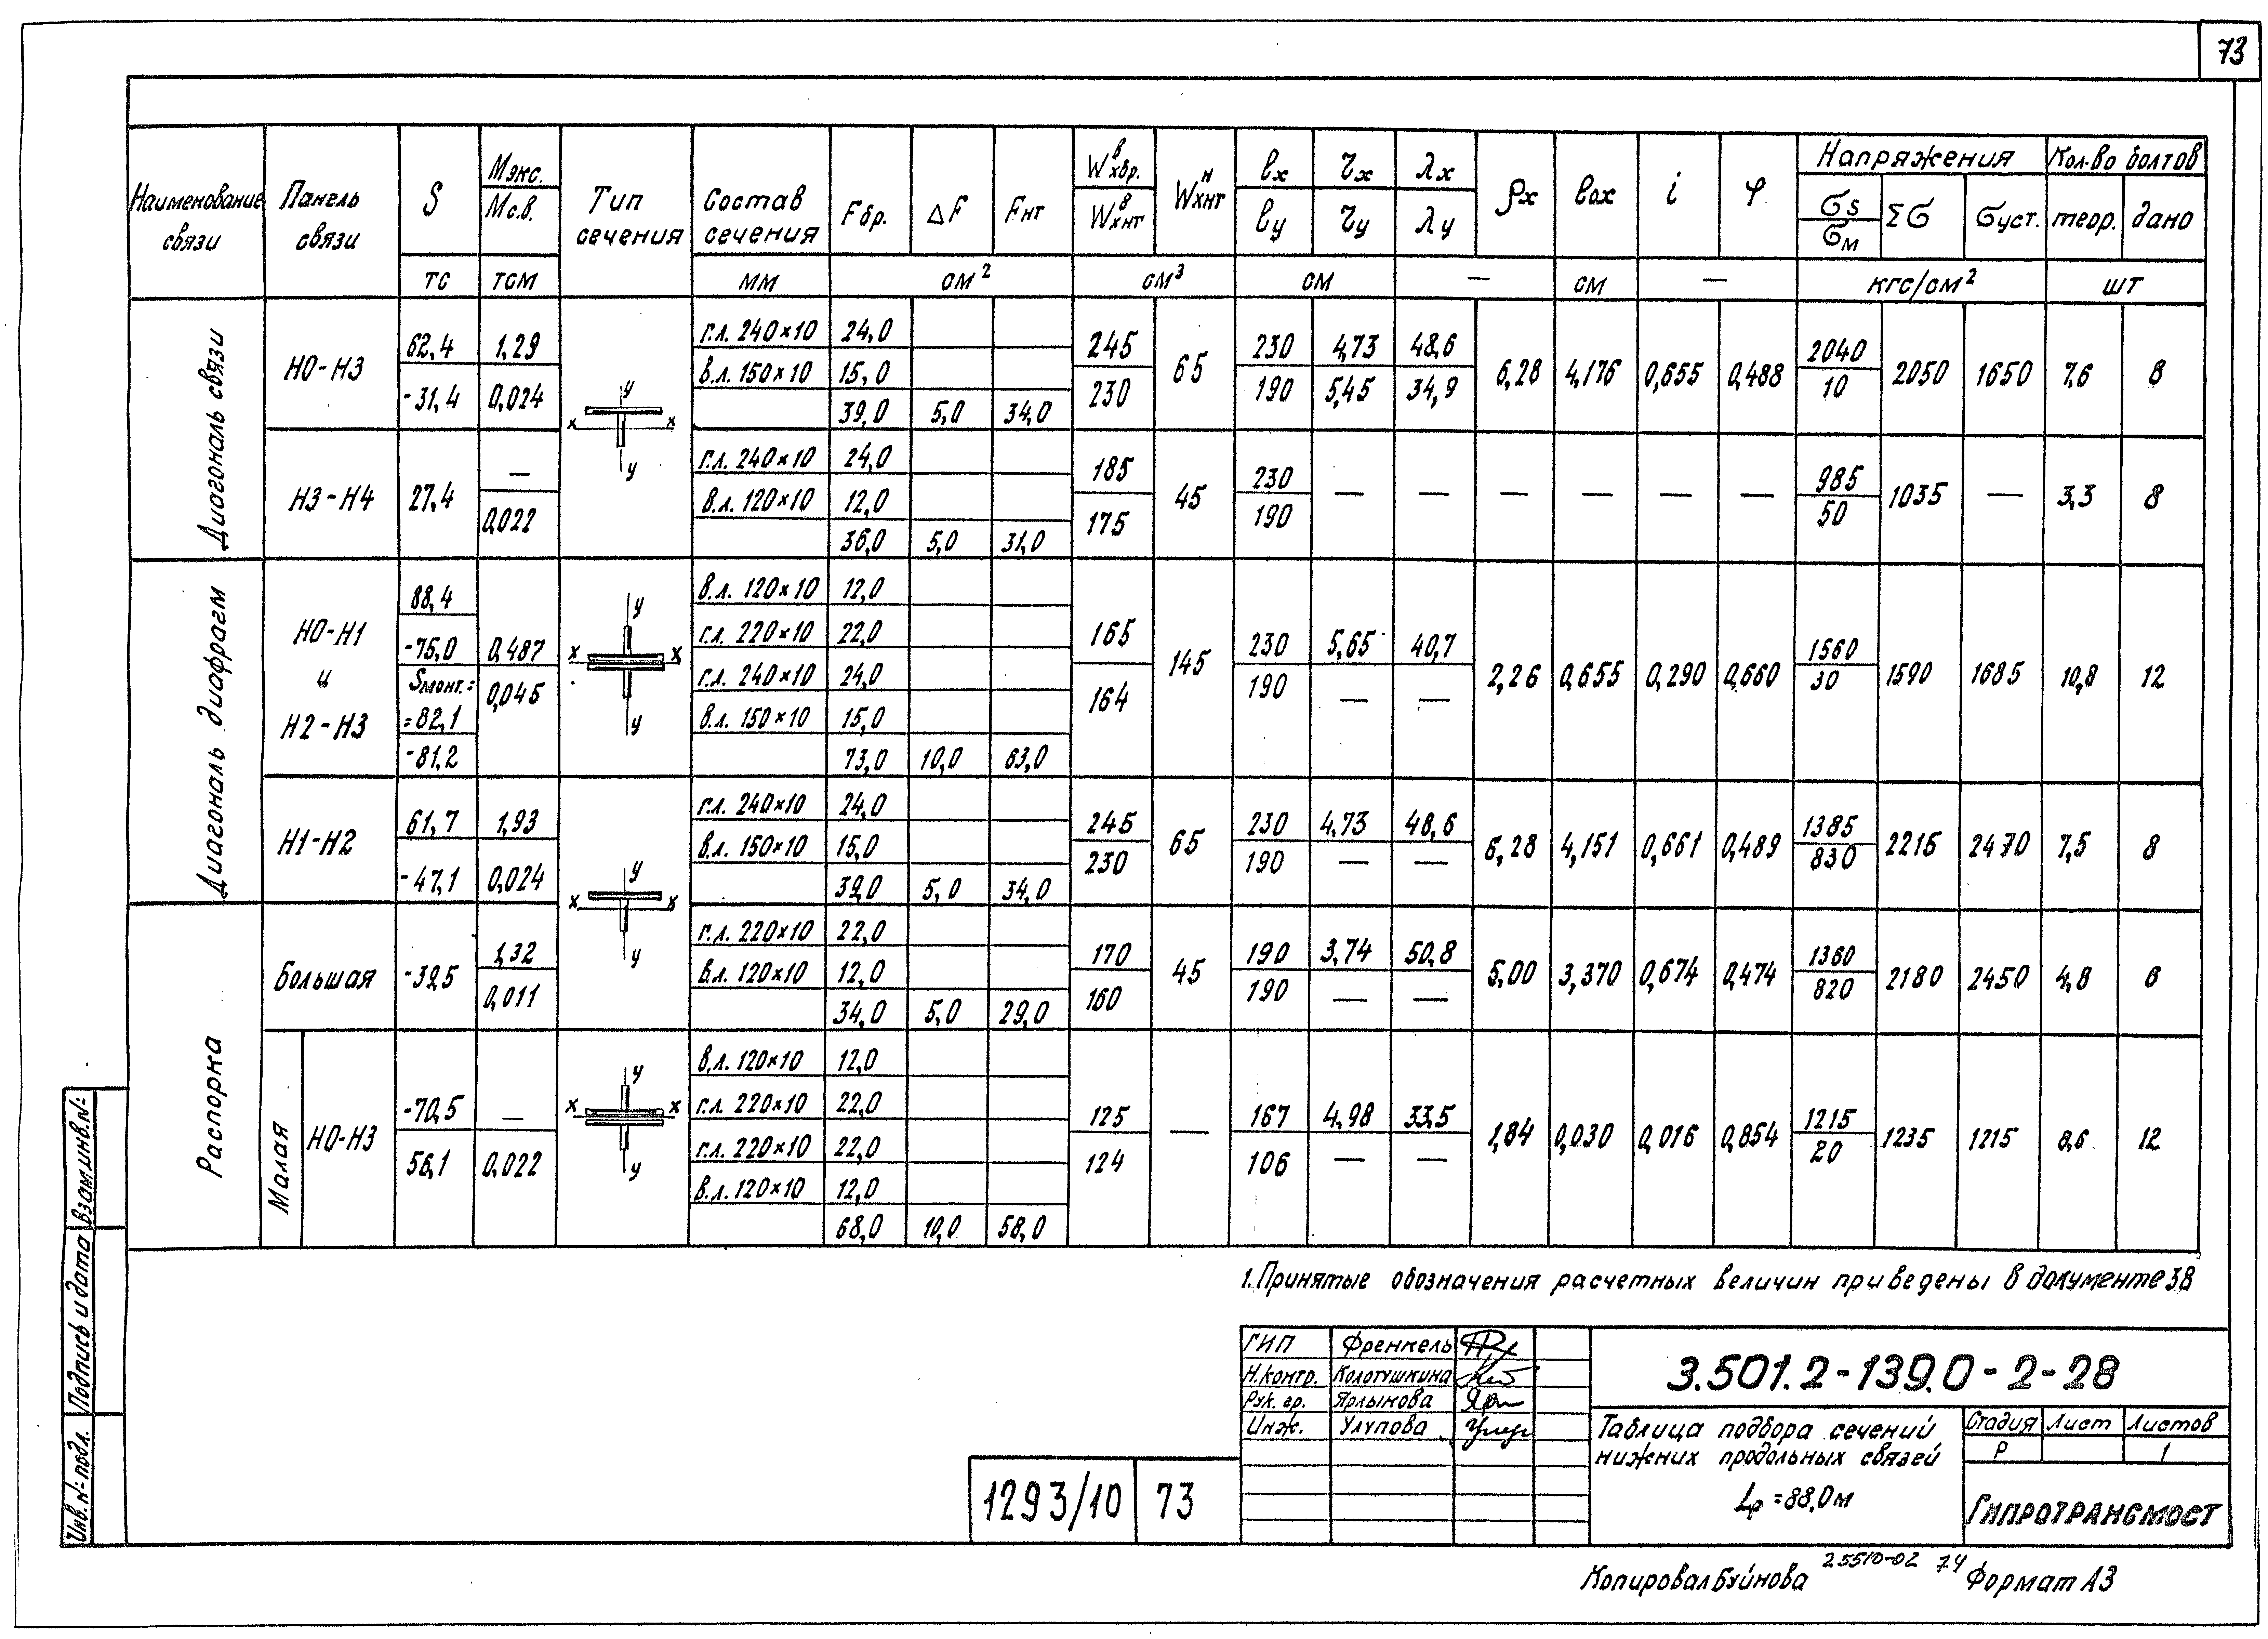 73
Наименование связи
Панель связи
S
Мэкс. / Мс.в.
Тип сечения
Состав сечения
Fбр.
ΔF
Fнт
Wᵇхбр. / Wᵇхнт
Wᴴхнт
lx / ly
τx / τy
λx / λy
ρx
lox
i
φ
Напряжения
σs / σм
Σσ
σуст.
Кол-во болтов
теор.
дано
тс тсм мм см² см³ см — см — кгс/см² шт
Диагональ связи
Н0-Н3
62,4
-31,4
1,29
0,024
г.л. 240×10 24,0
в.л. 150×10 15,0
39,0 5,0 34,0
245
230
65
230
190
4,73
5,45
48,6
34,9
6,28 4,176 0,655 0,488
2040
10
2050 1650 7,6 8
Н3-Н4
27,4
—
0,022
г.л. 240×10 24,0
в.л. 120×10 12,0
36,0 5,0 31,0
185
175
45
230
190
— — — — — —
985
50
1035 — 3,3 8
Диагональ диафрагм
Н0-Н1
и
Н2-Н3
88,4
-75,0
Sмонт.=
=82,1
-81,2
0,487
0,045
в.л. 120×10 12,0
г.л. 220×10 22,0
г.л. 240×10 24,0
в.л. 150×10 15,0
73,0 10,0 63,0
165
164
145
230
190
5,65
—
40,7
—
2,26 0,655 0,290 0,660
1560
30
1590 1685 10,8 12
Н1-Н2
61,7
-47,1
1,93
0,024
г.л. 240×10 24,0
в.л. 150×10 15,0
39,0 5,0 34,0
245
230
65
230
190
4,73
—
48,6
—
6,28 4,151 0,661 0,489
1385
830
2215 2470 7,5 8
Распорка
Большая
-39,5
1,32
0,011
г.л. 220×10 22,0
в.л. 120×10 12,0
34,0 5,0 29,0
170
160
45
190
190
3,74
—
50,8
—
5,00 3,370 0,674 0,474
1360
820
2180 2450 4,8 6
Малая
Н0-Н3
-70,5
56,1
—
0,022
в.л. 120×10 12,0
г.л. 220×10 22,0
г.л. 220×10 22,0
в.л. 120×10 12,0
68,0 10,0 58,0
125
124
—
167
106
4,98
—
33,5
—
1,84 0,030 0,016 0,854
1215
20
1235 1215 8,6 12
x x y y
x x y y
x x y y
x x y y
1. Принятые обозначения расчетных величин приведены в документе 38
Взам.инв.№
Подпись и дата
Инв.№ подл.
ГИП Френкель
Н.контр. Колотушкина
Рук. гр. Ярлыкова
Инж. Улупова
3.501.2-139.0-2-28
Таблица подбора сечений
нижних продольных связей
Lр=88,0м
Стадия Лист Листов
Р 1
Гипротрансмост
1293/10 73
Копировал Буйнова 25510-02 74 Формат А3